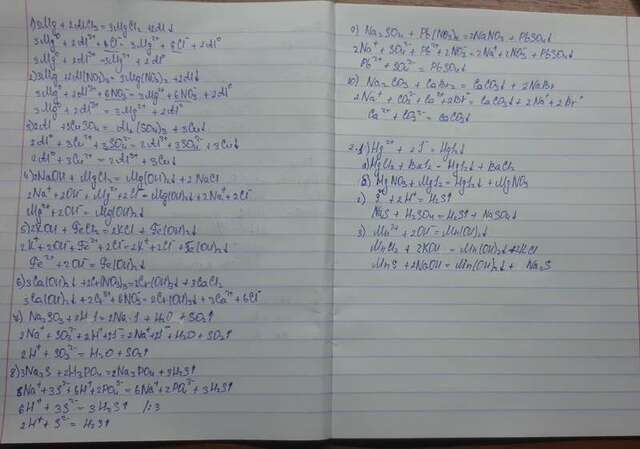 1) 3Mg + 2AlCl₃ = 3MgCl₂ + 2Al↓
3Mg⁰ + 2Al³⁺ + 6Cl⁻ = 3Mg²⁺ + 6Cl⁻ + 2Al⁰
3Mg⁰ + 2Al³⁺ = 3Mg²⁺ + 2Al⁰
2) 3Mg + 2Al(NO₃)₃ = 3Mg(NO₃)₂ + 2Al↓
3Mg⁰ + 2Al³⁺ + 6NO₃⁻ = 3Mg²⁺ + 6NO₃⁻ + 2Al⁰
3Mg⁰ + 2Al³⁺ = 3Mg²⁺ + 2Al⁰
3) 2Al + 3CuSO₄ = Al₂(SO₄)₃ + 3Cu↓
2Al⁰ + 3Cu²⁺ + 3SO₄²⁻ = 2Al³⁺ + 3SO₄²⁻ + 3Cu↓
2Al⁰ + 3Cu²⁺ = 2Al³⁺ + 3Cu↓
4) 2NaOH + MgCl₂ = Mg(OH)₂↓ + 2NaCl
2Na⁺ + 2OH⁻ + Mg²⁺ + 2Cl⁻ = Mg(OH)₂↓ + 2Na⁺ + 2Cl⁻
Mg²⁺ + 2OH⁻ = Mg(OH)₂↓
5) 2KOH + FeCl₂ = 2KCl + Fe(OH)₂↓
2K⁺ + 2OH⁻ + Fe²⁺ + 2Cl⁻ = 2K⁺ + 2Cl⁻ + Fe(OH)₂↓
Fe²⁺ + 2OH⁻ = Fe(OH)₂↓
6) 3Ca(OH)₂ + 2Cr(NO₃)₃ = 2Cr(OH)₃↓ + 3CaCl₂
3Ca(OH)₂ + 2Cr³⁺ + 6NO₃⁻ = 2Cr(OH)₃↓ + 3Ca²⁺ + 6Cl⁻
7) Na₂SO₃ + 2HI = 2NaI + H₂O + SO₂↑
2Na⁺ + SO₃²⁻ + 2H⁺ + 2I⁻ = 2Na⁺ + 2I⁻ + H₂O + SO₂↑
2H⁺ + SO₃²⁻ = H₂O + SO₂↑
8) 3Na₂S + 2H₃PO₄ = 2Na₃PO₄ + 3H₂S↑
6Na⁺ + 3S²⁻ + 6H⁺ + 2PO₄³⁻ = 6Na⁺ + 2PO₄³⁻ + 3H₂S↑
6H⁺ + 3S²⁻ = 3H₂S↑ /:3
2H⁺ + S²⁻ = H₂S↑
9) Na₂SO₄ + Pb(NO₃)₂ = 2NaNO₃ + PbSO₄↓
2Na⁺ + SO₄²⁻ + Pb²⁺ + 2NO₃⁻ = 2Na⁺ + 2NO₃⁻ + PbSO₄↓
Pb²⁺ + SO₄²⁻ = PbSO₄↓
10) Na₂CO₃ + CaBr₂ = CaCO₃↓ + 2NaBr
2Na⁺ + CO₃²⁻ + Ca²⁺ + 2Br⁻ = CaCO₃↓ + 2Na⁺ + 2Br⁻
Ca²⁺ + CO₃²⁻ = CaCO₃↓
2. 1) Hg²⁺ + 2I⁻ = HgI₂↓
а) HgCl₂ + BaI₂ = HgI₂↓ + BaCl₂
б) HgNO₃ + MgI₂ = HgI₂↓ + MgNO₃
2) S²⁻ + 2H⁺ = H₂S↑
NaS + H₂SO₄ = H₂S↑ + NaSO₄
3) Mn²⁺ + 2OH⁻ = Mn(OH)₂↓
MnCl₂ + 2KOH = Mn(OH)₂↓ + 2KCl
MnS + 2NaOH = Mn(OH)₂↓ + Na₂S